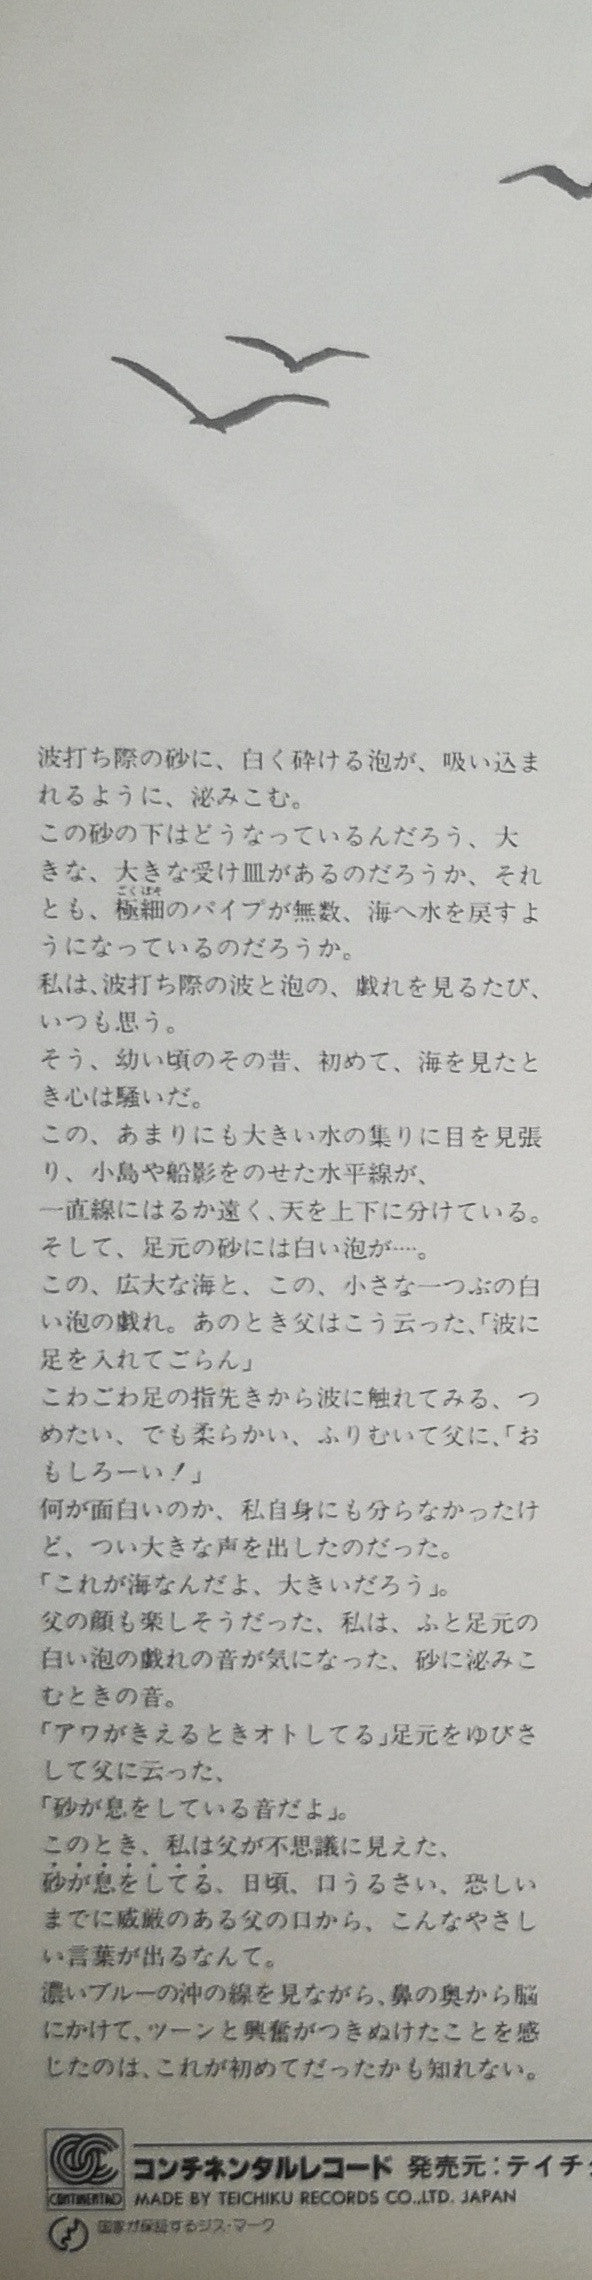 波打ち際の砂に、白く砕ける泡が、吸い込ま
れるように、泌みこむ。
この砂の下はどうなっているんだろう、大
きな、大きな受け皿があるのだろうか、それ
ごくぼそ
とも、極細のパイプが無数、海へ水を戻すよ
うになっているのだろうか。
私は、波打ち際の波と泡の、戯れを見るたび、
いつも思う。
そう、幼い頃のその昔、初めて、海を見たと
き心は騒いだ。
この、あまりにも大きい水の集りに目を見張
り、小島や船影をのせた水平線が、
一直線にはるか遠く、天を上下に分けている。
そして、足元の砂には白い泡が‥‥。
この、広大な海と、この、小さな一つぶの白
い泡の戯れ。あのとき父はこう云った、「波に
足を入れてごらん」
こわごわ足の指先きから波に触れてみる、つ
めたい、でも柔らかい、ふりむいて父に、「お
もしろーい！」
何が面白いのか、私自身にも分らなかったけ
ど、つい大きな声を出したのだった。
「これが海なんだよ、大きいだろう」。
父の顔も楽しそうだった、私は、ふと足元の
白い泡の戯れの音が気になった、砂に泌みこ
むときの音。
「アワがきえるときオトしてる」足元をゆびさ
して父に云った、
「砂が息をしている音だよ」。
このとき、私は父が不思議に見えた、
砂が息をしてる、日頃、口うるさい、恐しい
までに威厳のある父の口から、こんなやさし
い言葉が出るなんて。
濃いブルーの沖の線を見ながら、鼻の奥から脳
にかけて、ツーンと興奮がつきぬけたことを感
じたのは、これが初めてだったかも知れない。
コンチネンタルレコード 発売元：テイチ
CONTINENTAL MADE BY TEICHIKU RECORDS CO.,LTD. JAPAN
国家が保証するジス・マーク